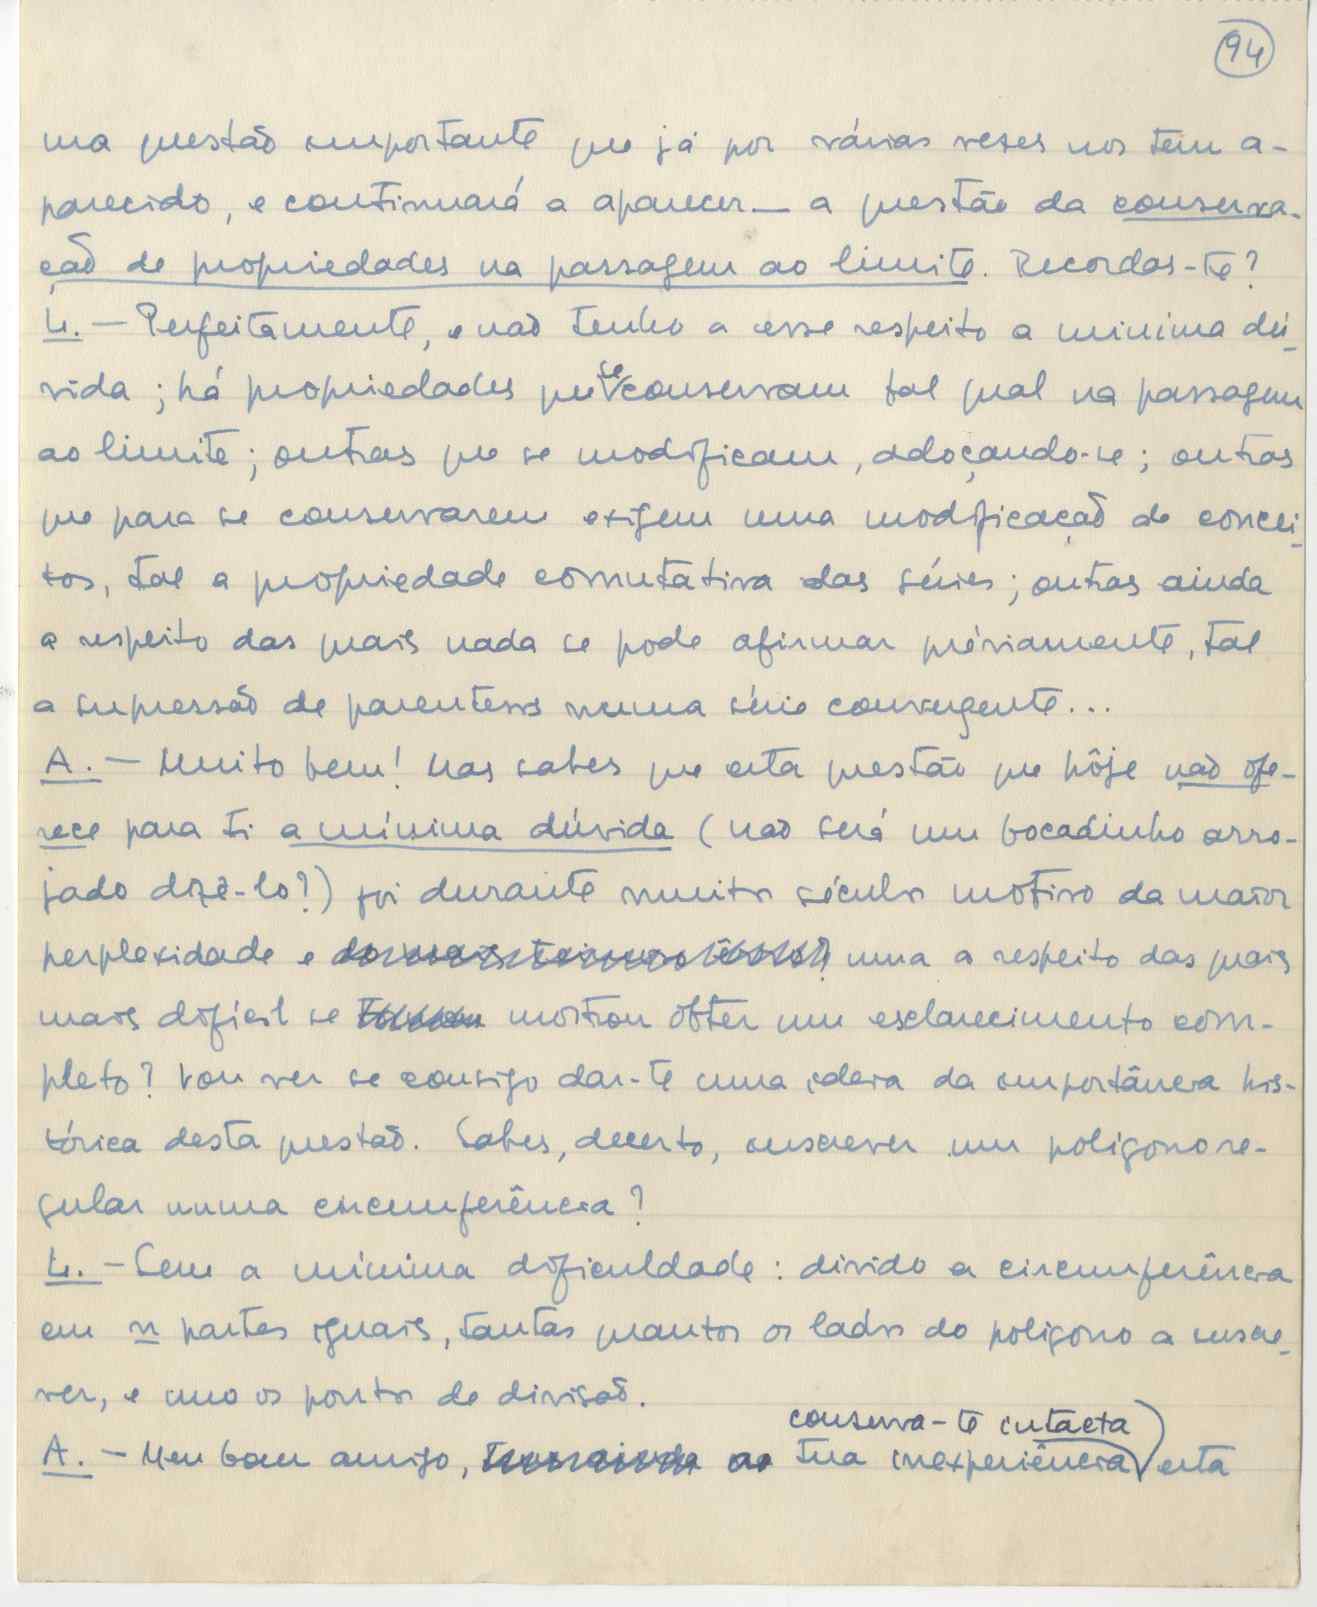 94
ma questão importante que já por várias vezes nos tem a-
parecido, e continuará a aparecer — a questão da conserva-
ção de propriedades na passagem ao limite. Recordas-te?
L. — Perfeitamente, e não tenho a esse respeito a minima dú-
vida; há propriedades que se conservam tal qual na passagem
ao limite; outras que se modificam, adoçando-se; outras
que para se conservarem exigem uma modificação de concei-
tos, tal a propriedade comutativa das séries; outras ainda
a respeito das quais nada se pode afirmar préviamente, tal
a supressão de parenteses numa série convergente...
A. — Muito bem! Mas sabes que esta questão que hôje não ofe-
rece para ti a mínima dúvida (não será um bocadinho arro-
jado dizê-lo?) foi durante muitos séculos motivo da maior
perplexidade e uma a respeito das quais
mais difícil se mostrou obter um esclarecimento com-
pleto? Vou ver se consigo dar-te uma ideia da importância his-
tórica desta questão. Sabes, decerto, inscrever um poligono re-
gular numa circunferência?
L. — Sem a mínima dificuldade: divido a circunferência
em n partes iguais, tantas quantos os lados do poligono a inscre-
ver, e uno os pontos de divisão.
conserva-te intacta
A. — Meu bom amigo, tua inexperiência esta